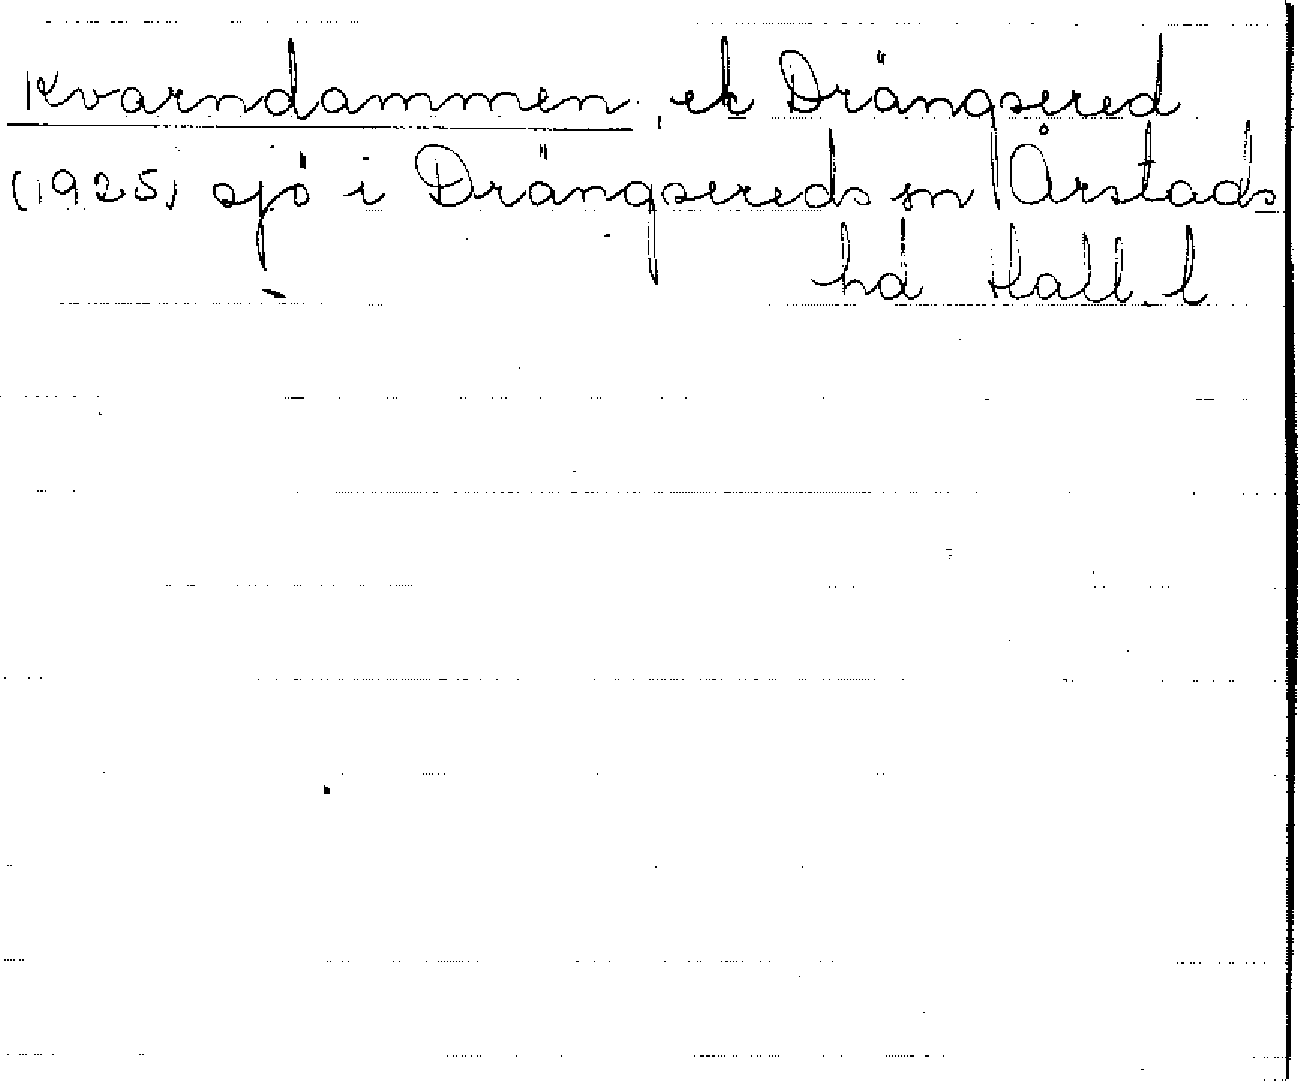 Kvarndammen, ek Drängsered
(1925) sjö i Drängsereds sn Årstads
hd Hall. l